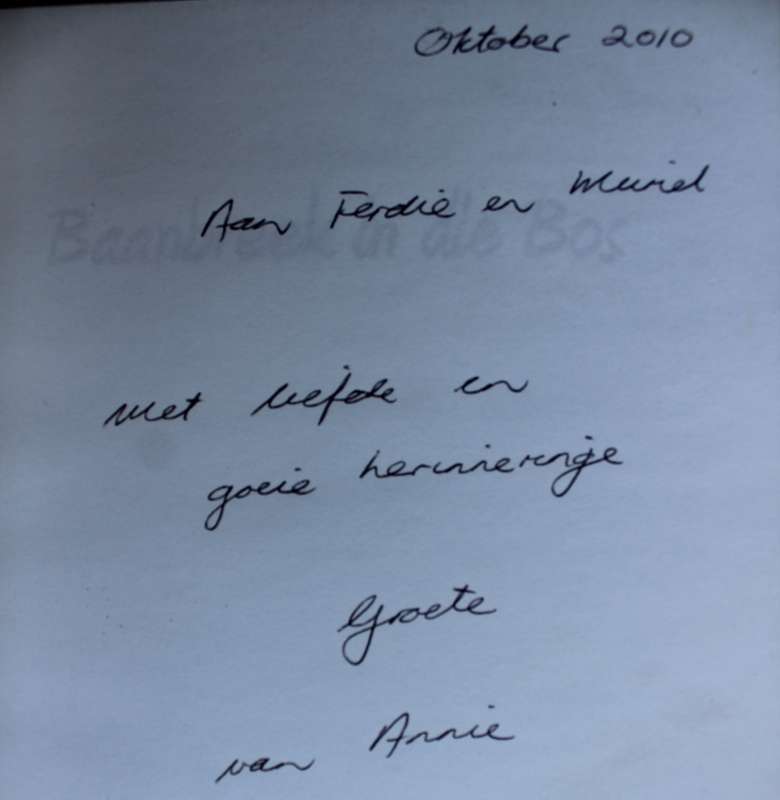 Oktober 2010
Aan Ferdie en Muriel
Baanbreek in die Bos
met liefde en
goeie herinneringe
Groete
van Annie